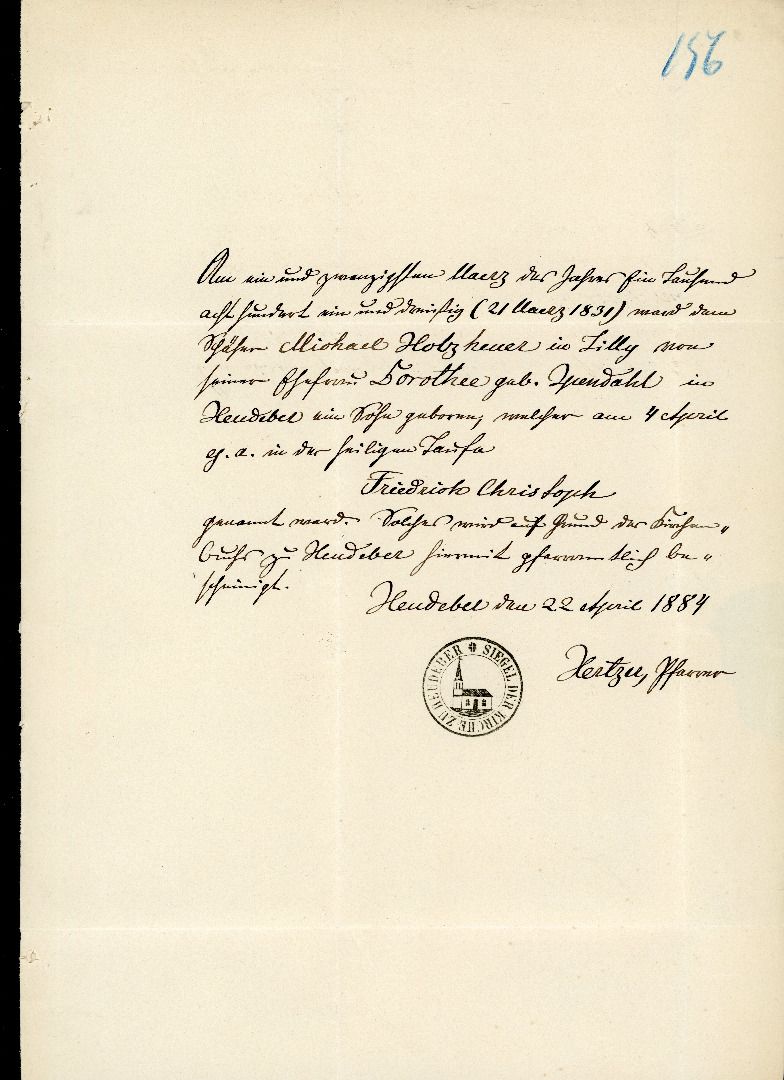 156
Am ein und zwanzigsten Maerz des Jahres Ein Tausend
acht hundert ein und dreißig (21 Maerz 1831) ward dem
Schäfer Michael Holzheuer in Zilly von
seiner Ehefrau Dorothee geb. Spendahl in
Heudeber ein Sohn geboren, welcher am 4 April
ej. a. in der heiligen Taufe
Friedrich Christoph
genannt ward. Solches wird auf Grund des Kirchen„
buchs zu Heudeber hiermit pfarramtlich be„
scheinigt.
Heudeber den 22 April 1884
Hertzer, Pfarrer
SIEGEL DER KIRCHE ZU HEUDEBER